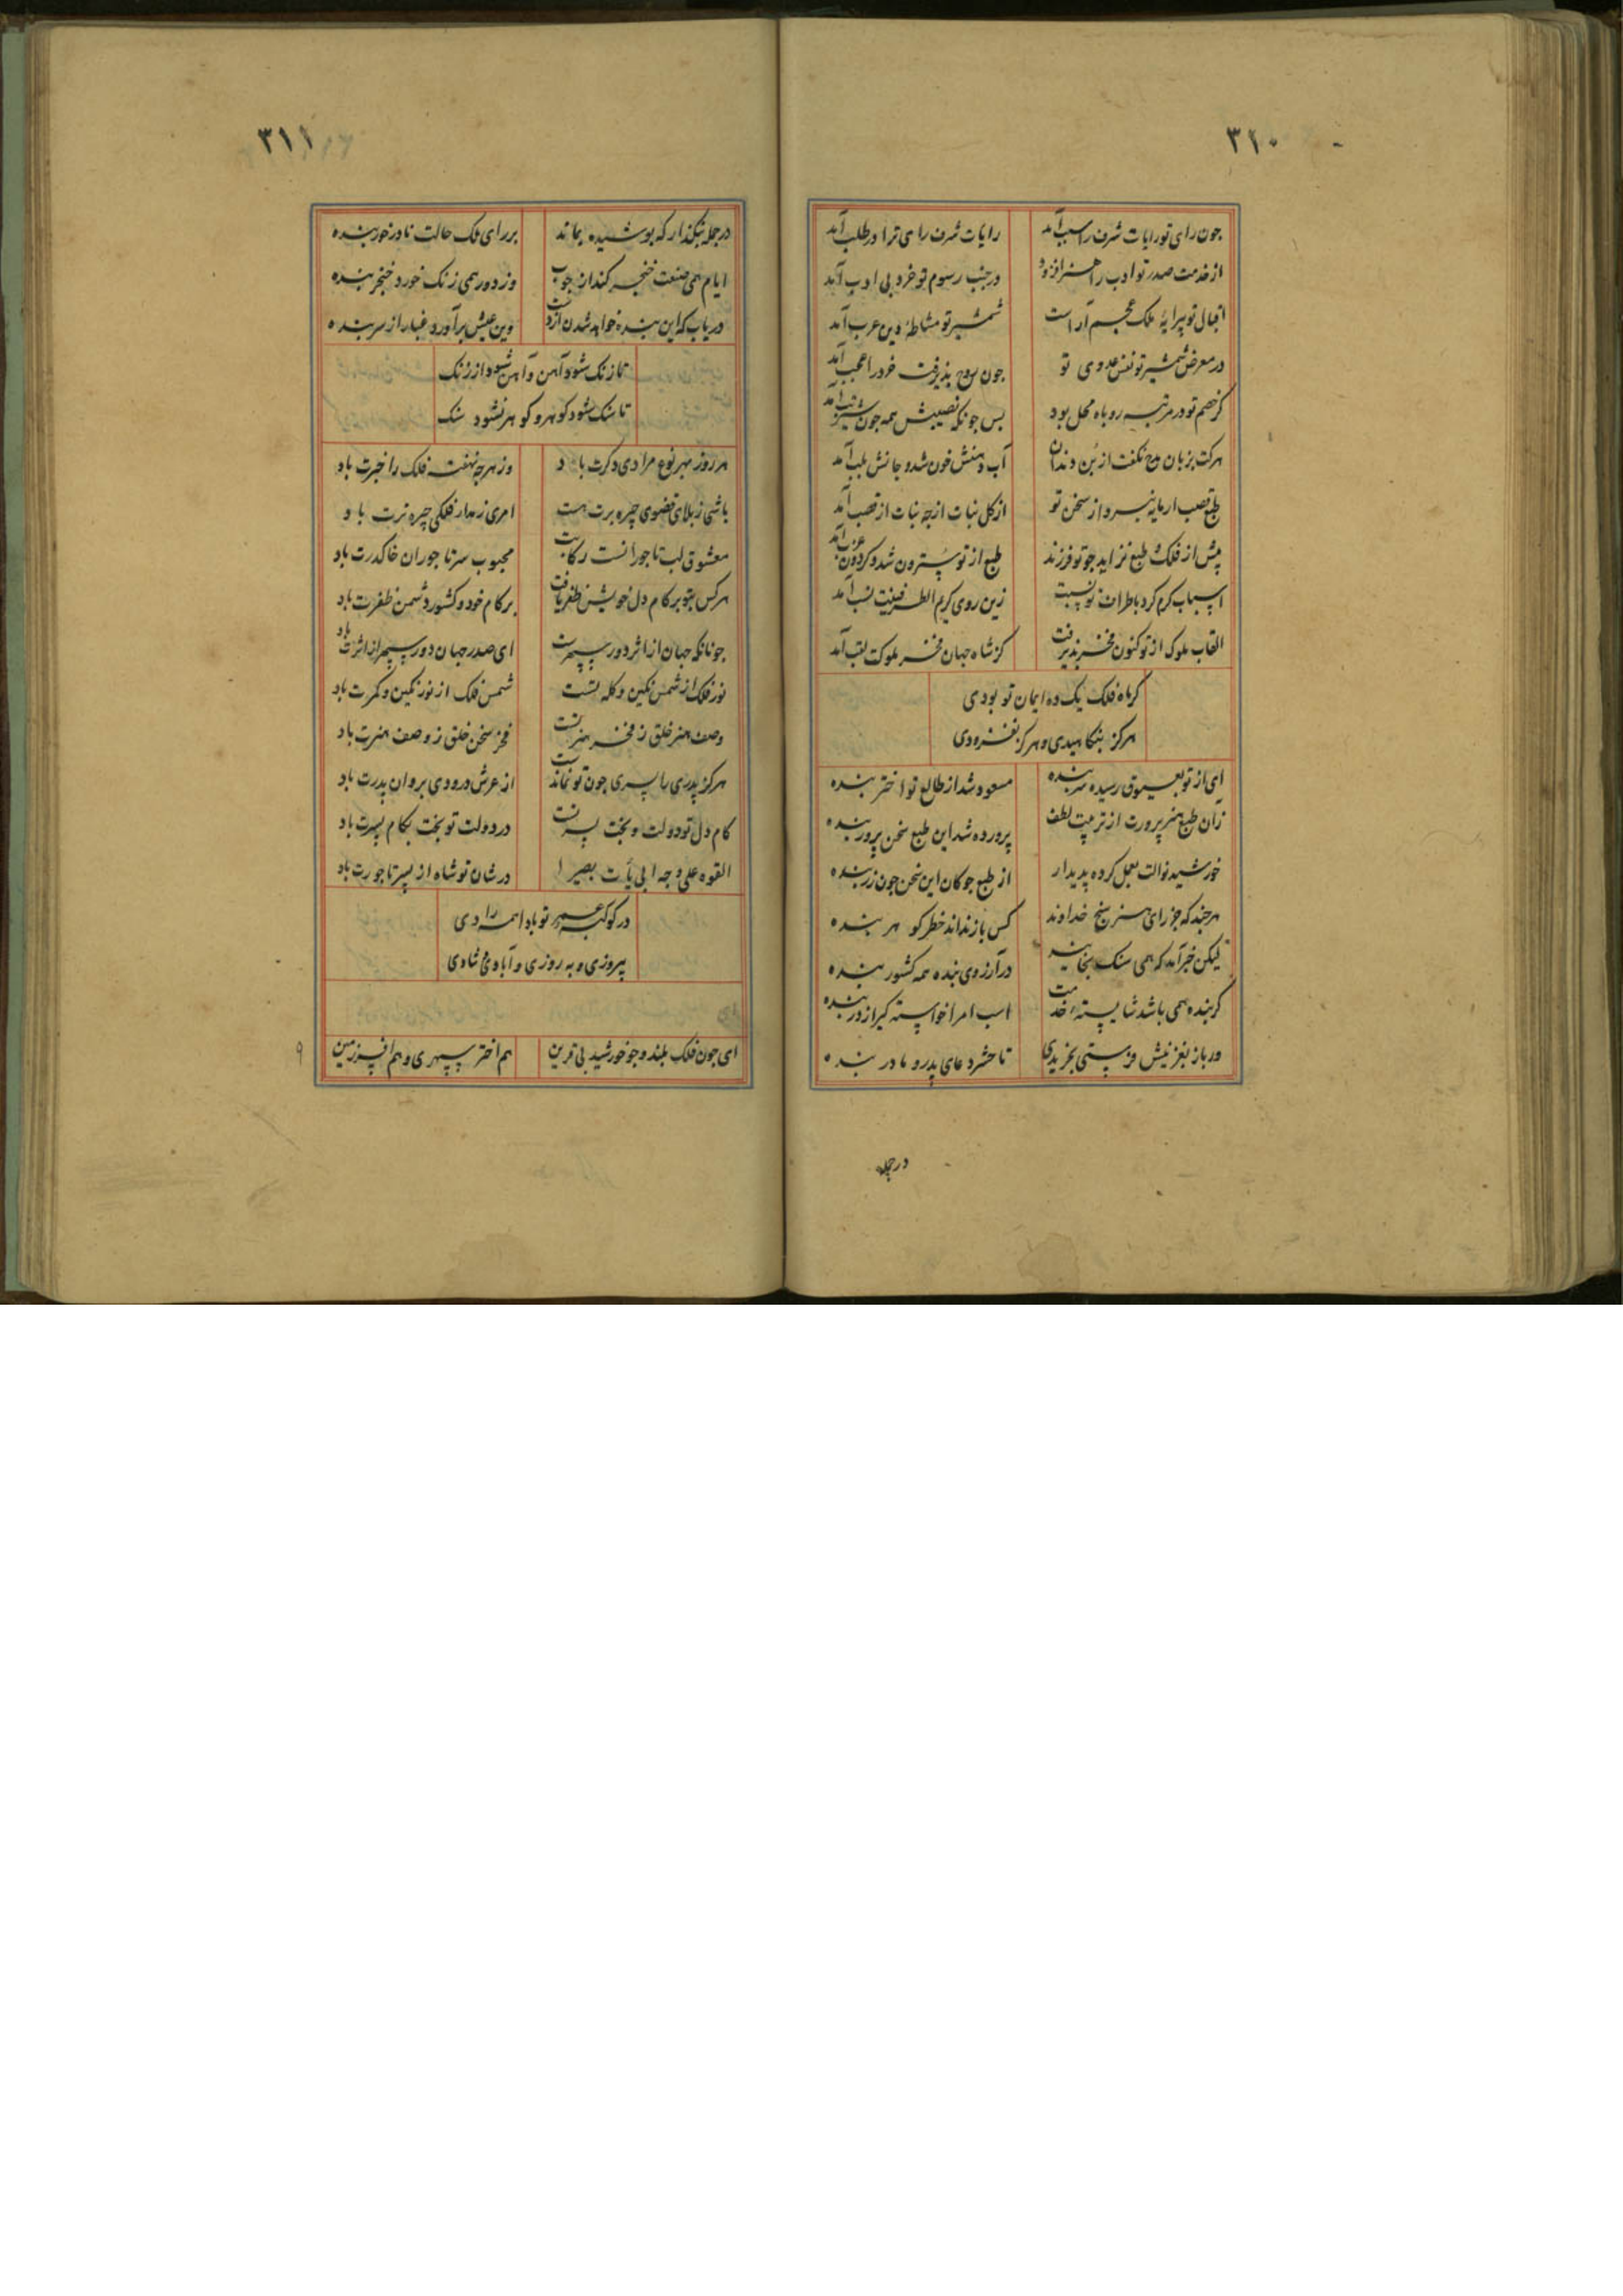 ۳۱۰
چون رای تو رایات شرف را سبب آمد رایات شرف رای ترا در طلب آمد
از خدمت صدر تو ادب را هنر افزود در جنب رسوم تو خرد بی ادب آمد
اقبال تو پیرایهٔ ملک عجم آراست شمشیر تو مشاطهٔ دین عرب آمد
در معرض شمشیر تو نفس عدوی تو چون روح پذیرفت خرد را عجب آمد
کر خصم تو در مرتبه روباه محل بود بس چونکه نصیبش همه چون شیر تب آمد
هر کت بزبان مدح نکفت از بن دندان آب دهنش خون شد و جانش بلب آمد
طبع قصب ار مایه نبرد از سخن تو از کل نبات از چه نبات از قصب آمد
پیش از فلک طبع نزاید چو تو فرزند طبع از تو سترون شد و کردون عزب آمد
اسباب کرم کرد باطراف تو نسبت زین روی کریم الطرفینت نسب آمد
القاب ملوک از تو کنون مفخر پذیرفت کز شاه جهان مفخر ملوکت لقب آمد
کر ماه فلک یک ده ایمان تو بودی
هرکز بنکاهیدی و هرکز بفزودی
ای از تو بعیوق رسیده سر بنده مسعود شد از طالع تو اختر بنده
زان طبع هنرپرورت از تربیت لطف پرورده شد این طبع سخن پرور بنده
خورشید نوالت بعمل کرده پدیدار از طبع چو کان این سخن چون زر بنده
هرچند که جز رای هنر سنج خداوند کس باز نداند خطر کوهر بنده
لیکن خبر آمد که همی سنک بخایند در آرزوی بنده همه کشور بنده
کر بنده همی باشد شایستهٔ خدمت اسب امرا خواسته کیر از در بنده
ور باز بغزنیش فرستی بخریدی تا حشر دعای پدر و مادر بنده
در جمله
۳۱۱
در جمله بنکذار که پوشیده بماند بر رای ملک حالت نادر خور بنده
ایام همی صنعت خنجر کند از چوب وز دور همی زنک خورد خنجر بنده
دریاب که این بنده نخواهد شدن از دست وین عیش برآورد غبار از سر بنده
تا زنک شود آهن و آهن شود از زنک
تا سنک شود کوهر و کوهر نشود سنک
هر روز بهر نوع مرادی دکرت باد وز هرچه نهفته فلک را خبرت باد
باشی ز بلای قضوی چیره برت هست امری ز مدار فلکی چیره ترت باد
معشوق لب تاجورانست رکابت محبوب سر تاجوران خاک درت باد
هر کس بتو بر کام دل خویش ظفر یافت بر کام خود و کشور دشمن ظفرت باد
چونانکه جهان از اثر دور سپهرست ای صدر جهان دور سپهر از اثرت باد
نور فلک از شمس نکین و کله تست شمس فلک از نور نکین و کمرت باد
وصف هنر خلق ز مفخر هنر تست فخر سخن خلق ز وصف هنرت باد
هرکز پدری را پسری چون تو نماندست از عرش درودی بروان پدرت باد
کام دل تو دولت و بخت پسر تست در دولت تو بخت بکام پسرت باد
القوه علی وجه ابی یأت بصیرا در شان تو شاه از پسر تاجورت باد
در کوکبهٔ عمر تو باد اهمه رادی
پیروزی و به روزی و آبادی و شادی
ای چون فلک بلند و چو خورشید بی قرین هم اختر سپهری و هم افسر زمین
۹